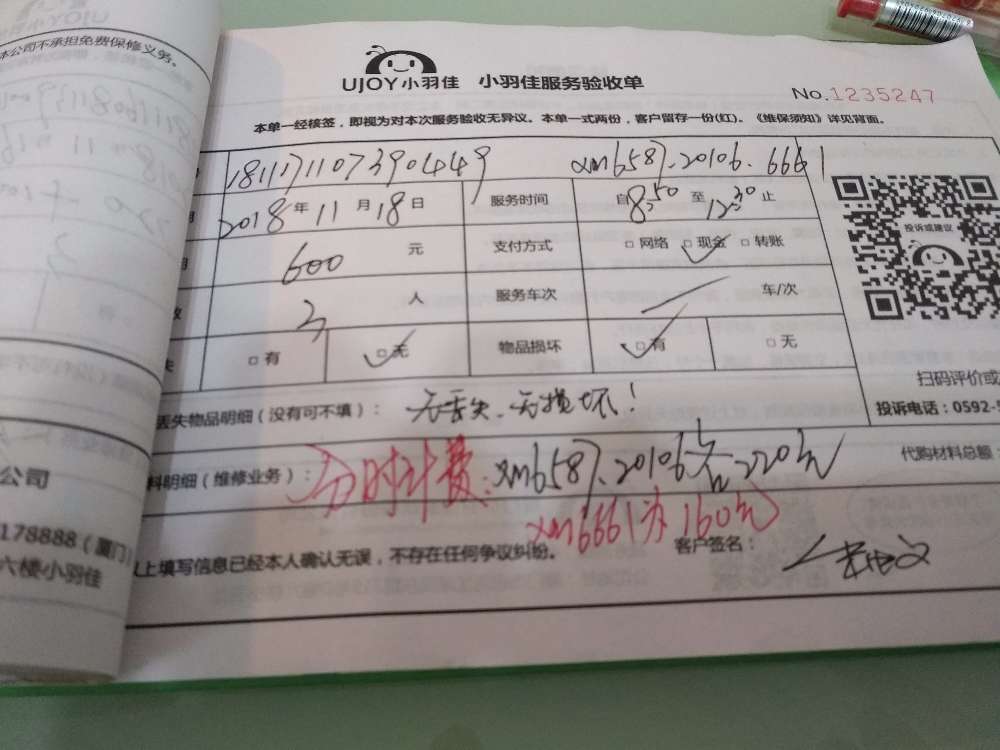 本公司不承担免费保修义务。
UJOY小羽佳 小羽佳服务验收单
No.1235247
本单一经核签，即视为对本次服务验收无异议。本单一式两份，客户留存一份(红)。《维保须知》详见背面。
181171107390449 xm6587.20106.6661
2018年11月18日 服务时间 自8:50至12:30止
600元 支付方式 □网络 □现金 □转账
投诉或建议
3人 服务车次 车/次
□有 □无 物品损坏 □有 □无
扫码评价或
丢失物品明细（没有可不填）： 无丢失、无损坏！
投诉电话：0592-
料明细（维修业务）： 分时计费：xm6587.20106各220元
代购材料总额：
xm6661为160元
公司
178888（厦门）
六楼小羽佳
以上填写信息已经本人确认无误，不存在任何争议纠纷。 客户签名：